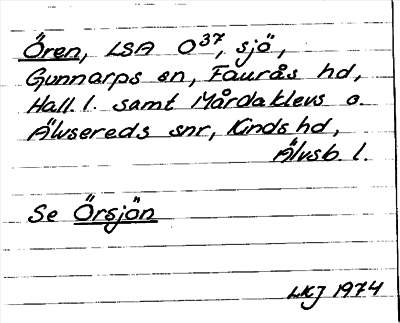 Ören, LSA O³⁷, sjö,
Gunnarps sn, Faurås hd,
Hall. l. samt Mårdaklevs o.
Älvsereds snr, Kinds hd,
Älvsb. l.
Se Örsjön
LKJ 1974